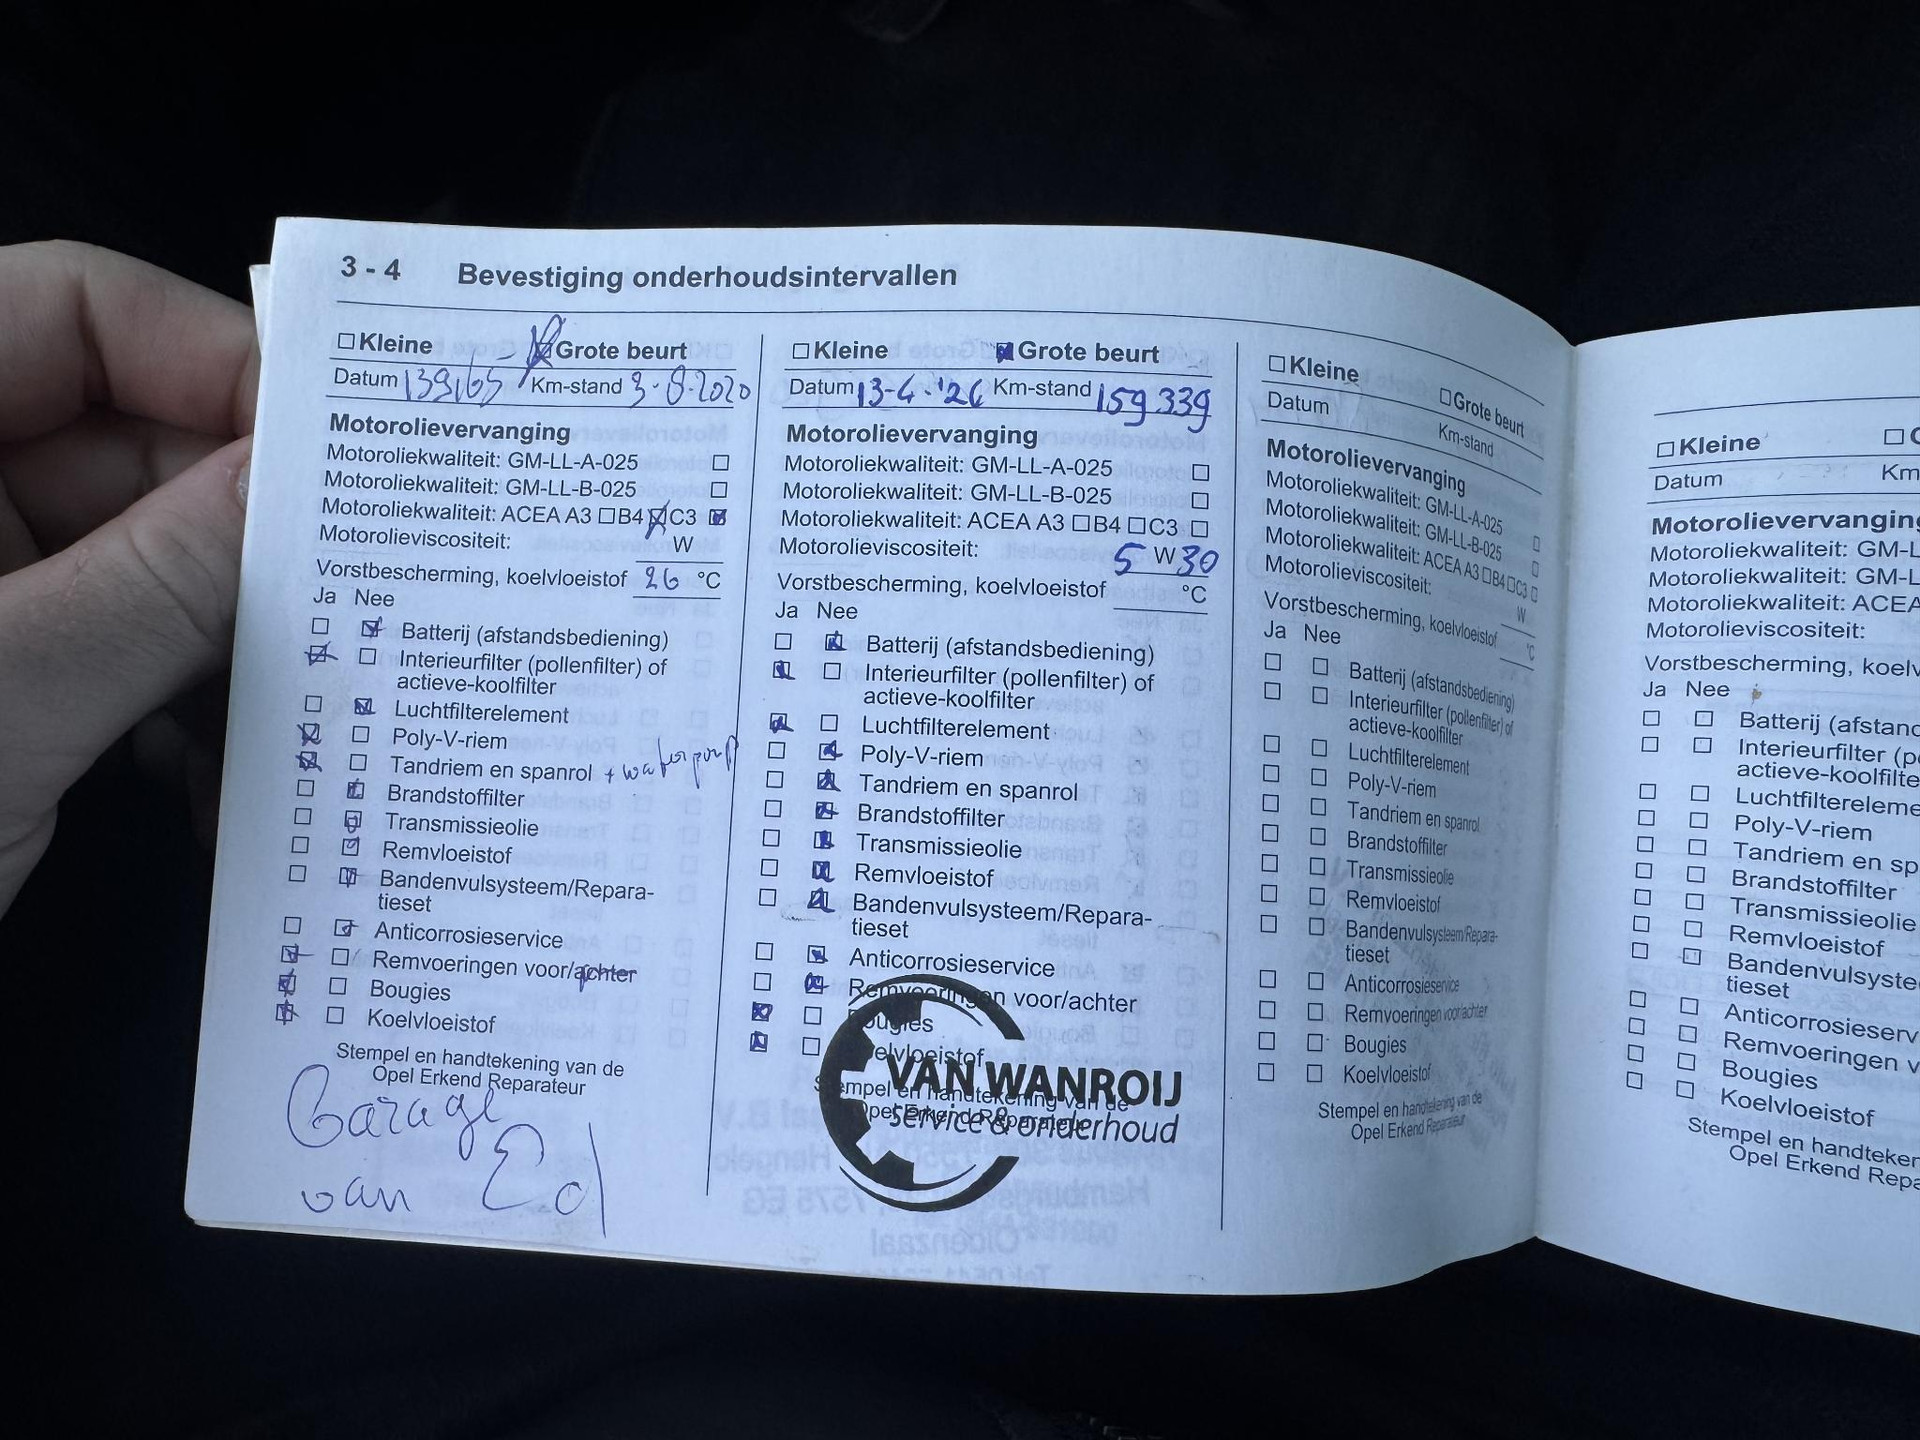 3 - 4 Bevestiging onderhoudsintervallen
☐ Kleine ☒ Grote beurt
Datum 139165 Km-stand 3-8-2020
Motorolievervanging
Motoroliekwaliteit: GM-LL-A-025 ☐
Motoroliekwaliteit: GM-LL-B-025 ☐
Motoroliekwaliteit: ACEA A3 ☐ B4 ☒ C3 ☒
Motorolieviscositeit: W
Vorstbescherming, koelvloeistof 26 °C
Ja Nee
☐ ☒ Batterij (afstandsbediening)
☒ ☐ Interieurfilter (pollenfilter) of
actieve-koolfilter
☐ ☒ Luchtfilterelement
☒ ☐ Poly-V-riem
☒ ☐ Tandriem en spanrol + waterpomp
☐ ☒ Brandstoffilter
☐ ☒ Transmissieolie
☐ ☒ Remvloeistof
☐ ☒ Bandenvulsysteem/Repara-
tieset
☐ ☒ Anticorrosieservice
☒ ☐ Remvoeringen voor/achter
☒ ☐ Bougies
☒ ☐ Koelvloeistof
Stempel en handtekening van de
Opel Erkend Reparateur
Garage
van Ed
☐ Kleine ☒ Grote beurt
Datum 13-4-'26 Km-stand 159339
Motorolievervanging
Motoroliekwaliteit: GM-LL-A-025 ☐
Motoroliekwaliteit: GM-LL-B-025 ☐
Motoroliekwaliteit: ACEA A3 ☐ B4 ☐ C3 ☐
Motorolieviscositeit: 5 W 30
Vorstbescherming, koelvloeistof °C
Ja Nee
☐ ☒ Batterij (afstandsbediening)
☒ ☐ Interieurfilter (pollenfilter) of
actieve-koolfilter
☒ ☐ Luchtfilterelement
☐ ☒ Poly-V-riem
☐ ☒ Tandriem en spanrol
☐ ☒ Brandstoffilter
☐ ☒ Transmissieolie
☐ ☒ Remvloeistof
☐ ☒ Bandenvulsysteem/Repara-
tieset
☐ ☒ Anticorrosieservice
☐ ☒ Remvoeringen voor/achter
☒ ☐ Bougies
☒ ☐ Koelvloeistof
Stempel en handtekening van de
Opel Erkend Reparateur
VAN WANROIJ
service & onderhoud
☐ Kleine ☐ Grote beurt
Datum Km-stand
Motorolievervanging
Motoroliekwaliteit: GM-LL-A-025
Motoroliekwaliteit: GM-LL-B-025 ☐
Motoroliekwaliteit: ACEA A3 ☐ B4 ☐ C3 ☐
Motorolieviscositeit: W
Vorstbescherming, koelvloeistof °C
Ja Nee
☐ ☐ Batterij (afstandsbediening)
☐ ☐ Interieurfilter (pollenfilter) of
actieve-koolfilter
☐ ☐ Luchtfilterelement
☐ ☐ Poly-V-riem
☐ ☐ Tandriem en spanrol
☐ ☐ Brandstoffilter
☐ ☐ Transmissieolie
☐ ☐ Remvloeistof
☐ ☐ Bandenvulsysteem/Repara-
tieset
☐ ☐ Anticorrosieservice
☐ ☐ Remvoeringen voor/achter
☐ ☐ Bougies
☐ ☐ Koelvloeistof
Stempel en handtekening van de
Opel Erkend Reparateur
☐ Kleine ☐ G
Datum Km
Motorolievervanging
Motoroliekwaliteit: GM-L
Motoroliekwaliteit: GM-L
Motoroliekwaliteit: ACEA
Motorolieviscositeit:
Vorstbescherming, koelv
Ja Nee
☐ ☐ Batterij (afstand
☐ ☐ Interieurfilter (p
actieve-koolfilte
☐ ☐ Luchtfiltereleme
☐ ☐ Poly-V-riem
☐ ☐ Tandriem en sp
☐ ☐ Brandstoffilter
☐ ☐ Transmissieolie
☐ ☐ Remvloeistof
☐ ☐ Bandenvulsyste
tieset
☐ ☐ Anticorrosieserv
☐ ☐ Remvoeringen v
☐ ☐ Bougies
☐ ☐ Koelvloeistof
Stempel en handteken
Opel Erkend Repa